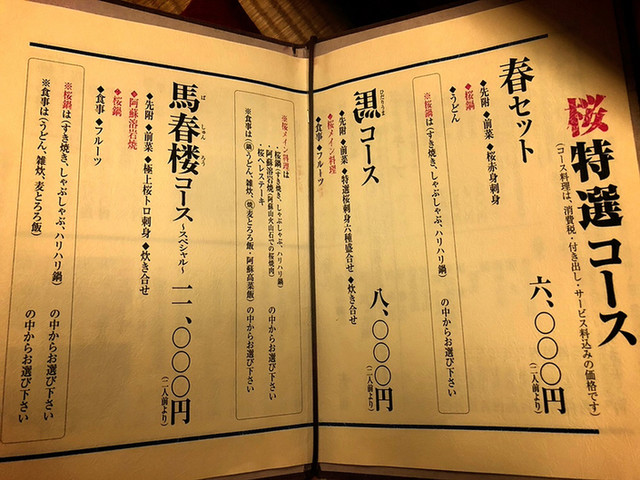 桜特選コース
(コース料理は、消費税・付き出し・サービス料込みの価格です)
春セット 六、〇〇〇円(二人前より)
◆先附 ◆前菜 ◆桜赤身刺身
◆桜鍋
◆うどん
※桜鍋は(すき焼き、しゃぶしゃぶ、ハリハリ鍋) の中からお選び下さい
ひだりうま
コース 八、〇〇〇円(二人前より)
◆先附 ◆前菜 ◆特選桜刺身六種盛合せ ◆炊き合せ
◆桜メイン料理
◆食事 ◆フルーツ
※桜メイン料理は
・桜鍋(すき焼き、しゃぶしゃぶ、ハリハリ鍋)
・阿蘇溶岩焼(阿蘇山火山石での桜焼肉)
・桜ヘレステーキ の中からお選び下さい
※食事は(鍋)うどん、雑炊、(焼)麦とろろ飯・阿蘇高菜飯) の中からお選び下さい
ば しゅん ろう
馬春楼コース ～スペシャル～ 一一、〇〇〇円(二人前より)
◆先附 ◆前菜 ◆極上桜トロ刺身 ◆炊き合せ
◆阿蘇溶岩焼
◆桜鍋
◆食事 ◆フルーツ
※桜鍋は(すき焼き、しゃぶしゃぶ、ハリハリ鍋) の中からお選び下さい
※食事は(うどん、雑炊、麦とろろ飯) の中からお選び下さい